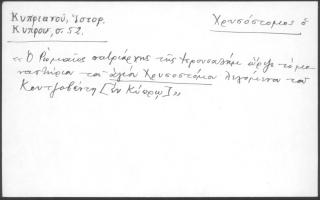 Κυπριανοῦ, Ἱστορ.
Κύπρου, σ. 52.
Χρυσόστομος ὁ
« Ὁ Ῥωμαῖος πατριάρχης τῆς Ἱερουσαλὴμ ὥρισε τὸ μο
ναστήριον τοῦ ἁγίου Χρυσοστόμου λεγόμενον τοῦ
Κουτζοβένδη [ἐν Κύπρῳ] »